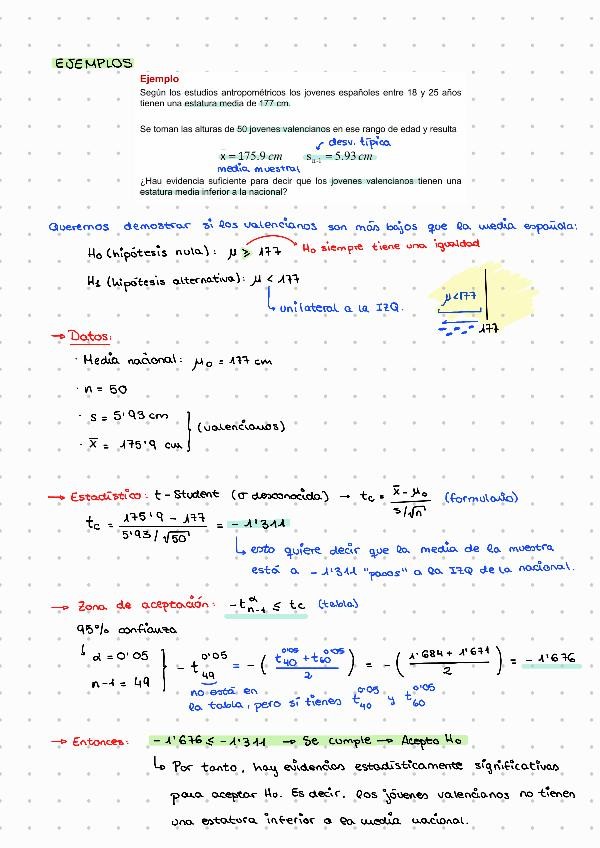 EJEMPLOS
Ejemplo
Según los estudios antropométricos los jovenes españoles entre 18 y 25 años
tienen una estatura media de 177 cm.
Se toman las alturas de 50 jovenes valencianos en ese rango de edad y resulta
desv. típica
x̄ = 175.9 cm sₙ₋₁ = 5.93 cm
media muestral
¿Hau evidencia suficiente para decir que los jovenes valencianos tienen una
estatura media inferior a la nacional?
Queremos demostrar si los valencianos son más bajos que la media española:
H0 (hipótesis nula): μ ≥ 177 → H0 siempre tiene una igualdad
H1 (hipótesis alternativa): μ < 177
↳ unilateral a la IZQ.
μ<177
177
→ Datos:
· Media nacional: μ₀ = 177 cm
· n = 50
· s = 5'93 cm
(valencianos)
· x̄ = 175'9 cm
→ Estadístico: t-Student (σ desconocida) → tc = (x̄ - μ₀) / (s/√n) (formulario)
tc = (175'9 - 177) / (5'93/√50) = -1'311
↳ esto quiere decir que la media de la muestra
está a -1'311 "pasos" a la IZQ de la nacional.
→ Zona de aceptación: -t^α_n-1 ≤ tc (tabla)
95% confianza
↳ α = 0'05
n-1 = 49
-t^0'05_49 = -((t^0'05_40 + t^0'05_60) / 2) = -((1'684 + 1'671) / 2) = -1'676
no está en
la tabla, pero sí tienes t^0'05_40 y t^0'05_60
→ Entonces: -1'676 ≤ -1'311 → Se cumple → Acepto H0
↳ Por tanto, hay evidencias estadísticamente significativas
para aceptar H0. Es decir, los jóvenes valencianos no tienen
una estatura inferior a la media nacional.